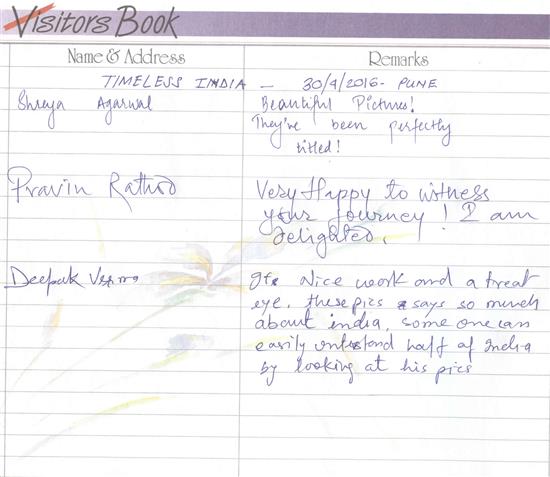 Visitors Book
Name & Address Remarks
TIMELESS INDIA - 30/9/2016- PUNE
Shreya Agarwal Beautiful Pictures!
They've been perfectly
titled!
Pravin Rathod Very Happy to witness
your Journey! I am
delighted.
Deepak Verma Its Nice work and a treat
eye. these pics says so much
about india. some one can
easily understand half of India
by looking at his pics